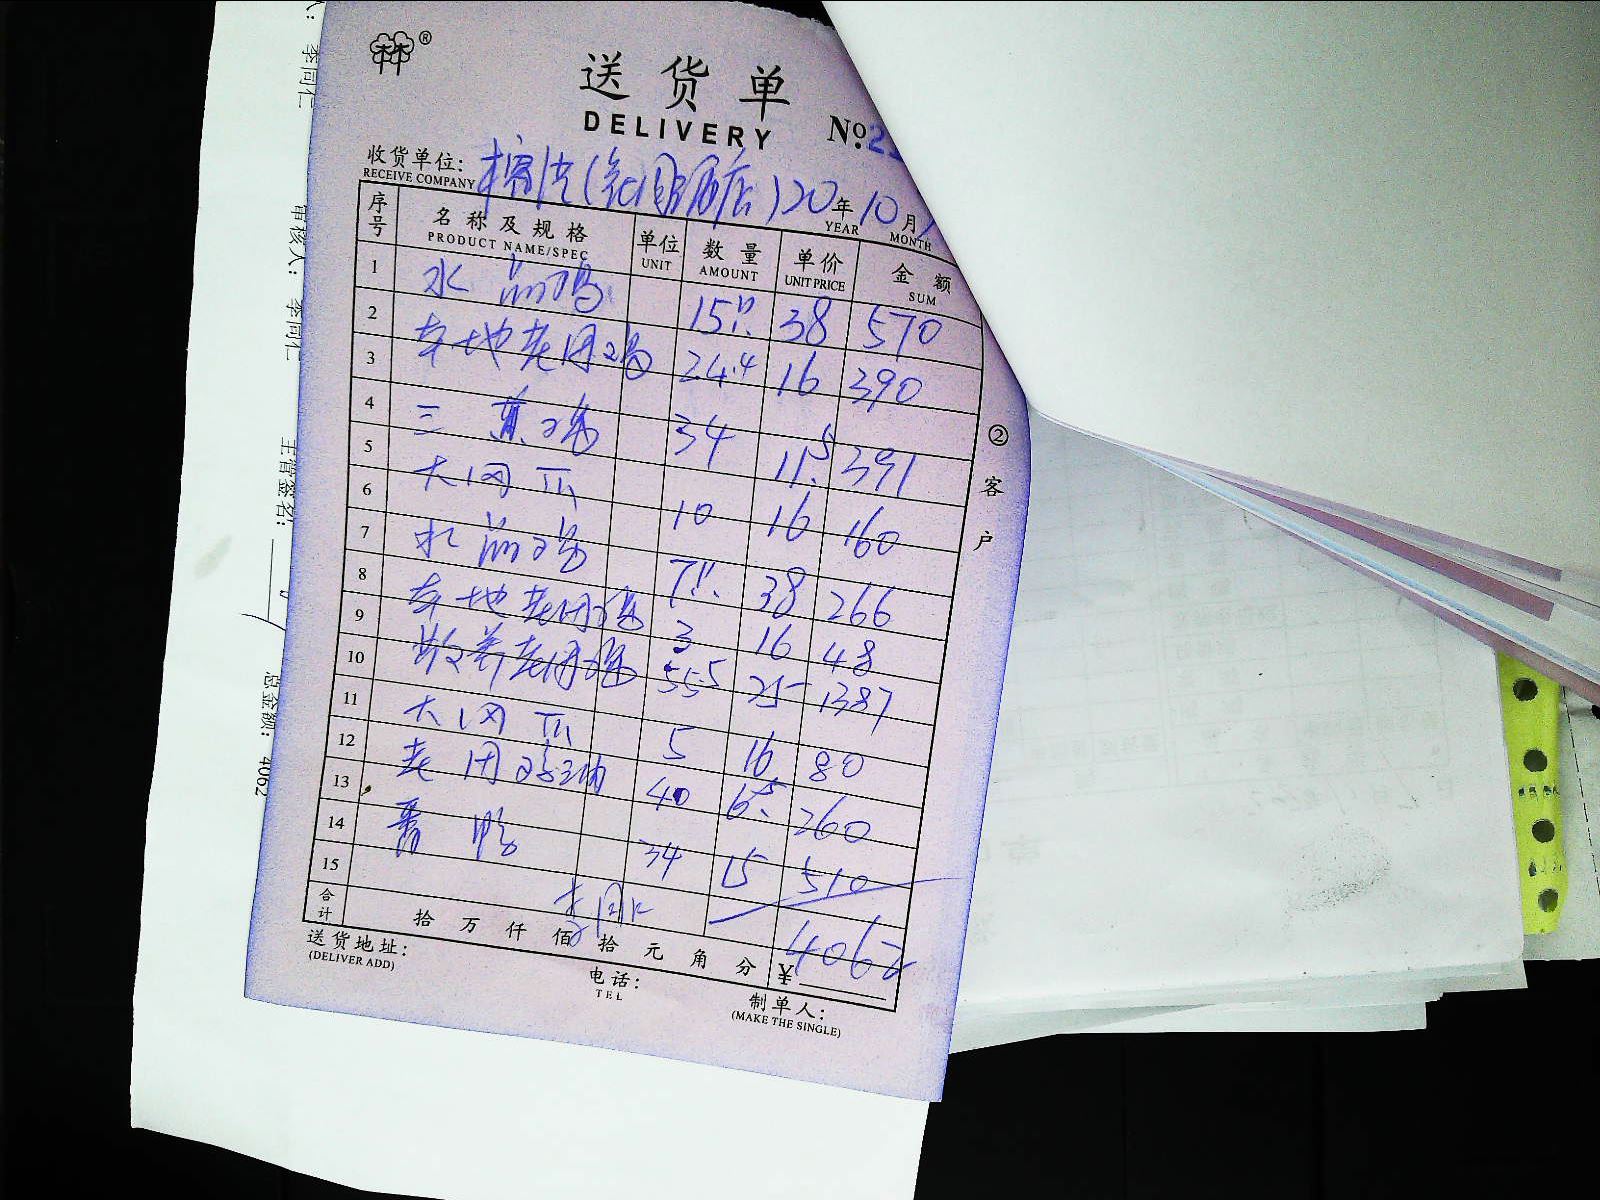 林®
送货单
DELIVERY
No.2
收货单位:
RECEIVE COMPANY
20 年 10 月
YEAR MONTH
序号 名称及规格 单位 数量 单价 金额
PRODUCT NAME/SPEC UNIT AMOUNT UNIT PRICE SUM
1 水晶鸡 15只 38 570
2 本地老母鸡 24.4 16 390
3 三黄鸡 34 11.5 391
4
5 大网爪 10 16 160
6 水晶鸡 7只 38 266
7
8 本地老母鸡 3 16 48
9 散养老母鸡 55.5 25 1387
10
11 大网爪 5 16 80
12 老母鸡油 40 6.5 260
13 番鸭 34 15 510
14
15
李同仁
合计 拾万仟佰拾元角分 ¥ 4062
送货地址:
(DELIVER ADD)
电话:
TEL
制单人:
(MAKE THE SINGLE)
②客户
李同仁
审核人: 李同仁
主管签名:
总金额: 4062